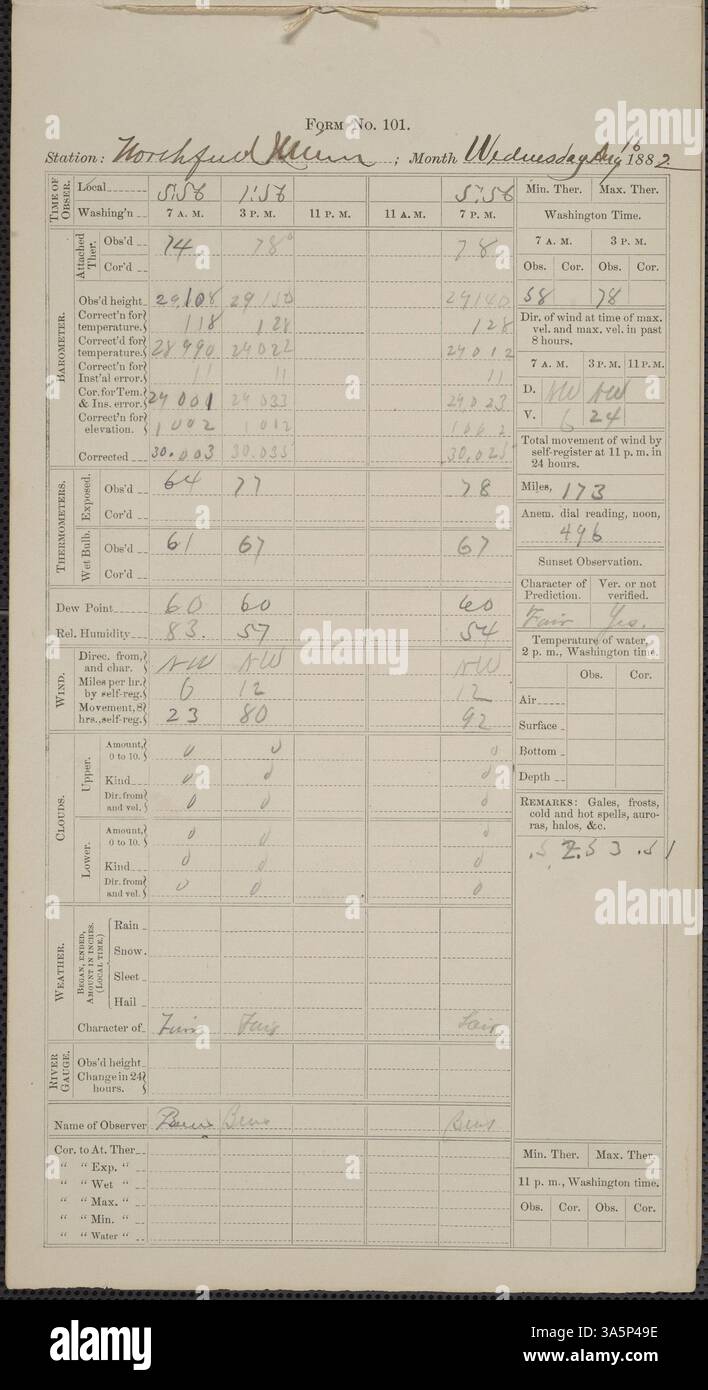 FORM NO. 101.
Station: Northfield Minn ; Month Wednesday Aug 16 1882
TIME OF OBSER.
Local 5:56 1:56 5:56
Washing'n 7 A. M. 3 P. M. 11 P. M. 11 A. M. 7 P. M.
BAROMETER.
Attached Ther.
Obs'd 74 78° 78
Cor'd
Obs'd height 29.108 29 150 29140
Correct'n for temperature. 118 128 128
Correct'd for temperature. 28 990 29022 29 012
Correct'n for Inst'al error. 11 11 11
Cor. for Tem. & Ins. error. 29 001 29 033 29.023
Correct'n for elevation. 1 002 1 002 1 002
Corrected 30.003 30.035 30.025
THERMOMETERS.
Exposed.
Obs'd 64 77 78
Cor'd
Wet Bulb.
Obs'd 61 67 67
Cor'd
Dew Point 60 60 60
Rel. Humidity 83. 57 54
WIND.
Direc. from, and char. NW NW NW
Miles per hr. by self-reg. 6 12 12
Movement, 8 hrs., self-reg. 23 80 92
CLOUDS.
Upper.
Amount, 0 to 10. 0 0 0
Kind 0 0 0
Dir. from and vel. 0 0 0
Lower.
Amount, 0 to 10. 0 0 0
Kind 0 0 0
Dir. from and vel. 0 0 0
WEATHER.
BEGAN, ENDED, AMOUNT IN INCHES. (LOCAL TIME.)
Rain
Snow
Sleet
Hail
Character of Fair Fair Fair
RIVER GAUGE.
Obs'd height
Change in 24 hours.
Name of Observer
Cor. to At. Ther
" " Exp. "
" " Wet "
" " Max. "
" " Min. "
" " Water "
Min. Ther. Max. Ther.
Washington Time.
7 A. M. 3 P. M.
Obs. Cor. Obs. Cor.
58 78
Dir. of wind at time of max. vel. and max. vel. in past 8 hours.
7 A. M. 3 P. M. 11 P. M.
D. NW NW
V. 6 24
Total movement of wind by self-register at 11 p. m. in 24 hours.
Miles, 173
Anem. dial reading, noon,
496
Sunset Observation.
Character of Prediction. Ver. or not verified.
Fair Yes.
Temperature of water, 2 p. m., Washington time.
Obs. Cor.
Air
Surface
Bottom
Depth
REMARKS: Gales, frosts, cold and hot spells, auroras, halos, &c.
Min. Ther. Max. Ther.
11 p. m., Washington time.
Obs. Cor. Obs. Cor.
alamy
alamy
Image ID: 3A5P49E
www.alamy.com